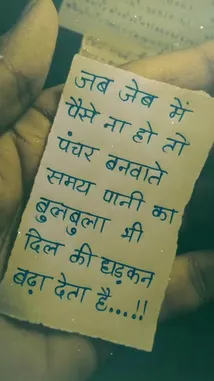 जब जेब में
पैसे ना हो तो
पंचर बनवाते
समय पानी का
बुलबुला भी
दिल की धड़कन
बढ़ा देता है....!!